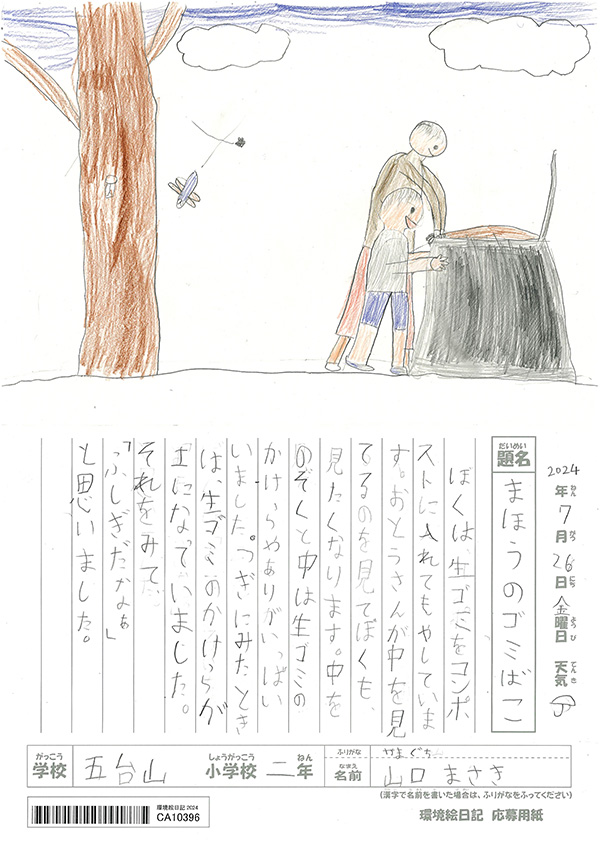 2024年ねん7月がつ26日にち金曜日ようび 天気てんき
題名だいめい まほうのゴミばこ
ぼくは、生ゴミをコンポ
ストに入れてもやしていま
す。おとうさんが中を見
てるのを見てぼくも、
見たくなります。中を
のぞくと中は生ゴミの
かけらやありがいっぱい
いました。つぎにみたとき
は、生ゴミのかけらが
土になっていました。
それをみて、
「ふしぎだなぁ」
と思いました。
がっこう しょうがっこう ねん ふりがな やまぐち
学校 五台山 小学校 二年 なまえ 名前 山口 まさき
(漢字で名前を書いた場合は、ふりがなをふってください)
環境絵日記 2024
CA10396
環境絵日記 応募用紙